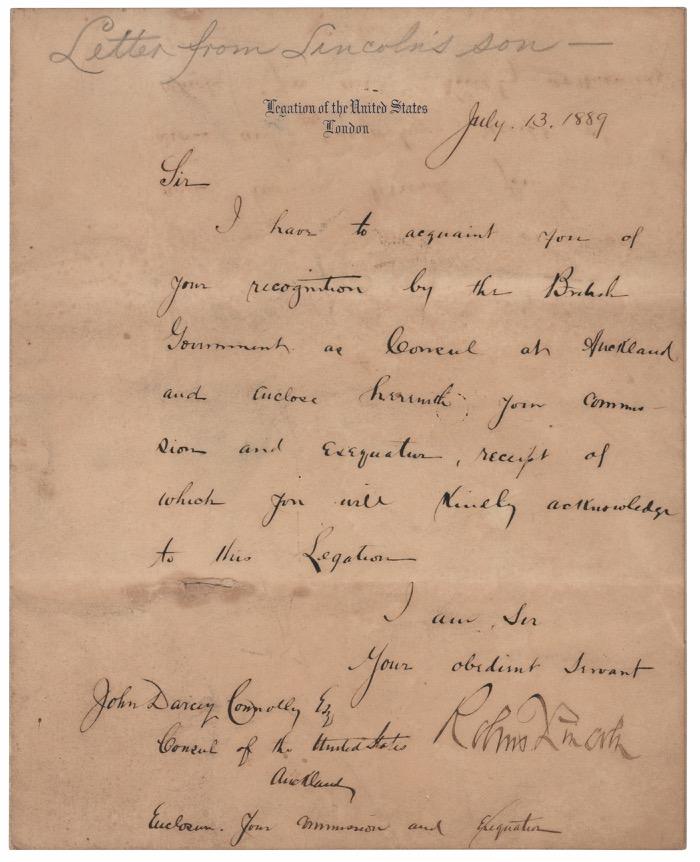 Letter from Lincoln's son —
Legation of the United States
London
July. 13. 1889
Sir
I have to acquaint you of
your recognition by the British
Government as Consul at Auckland
and enclose herewith your commis-
sion and exequatur, receipt of
which you will kindly acknowledge
to this Legation
I am, Sir
Your obedient servant
John Darcey Connolly Esq
Robert T Lincoln
Consul of the United States
Auckland,
Enclosure. Your commission and Exequatur